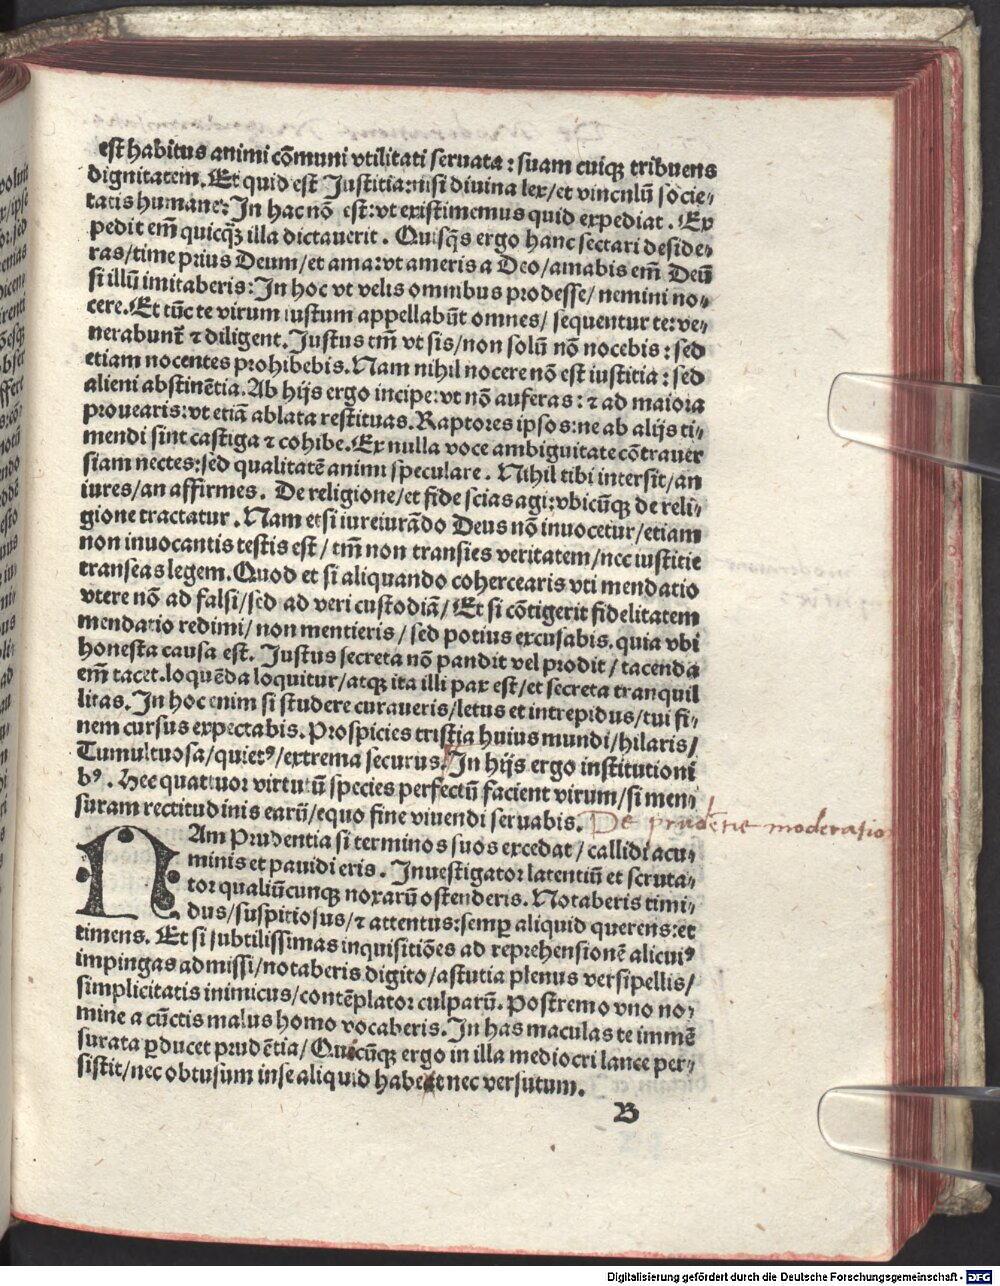 est habitus animi cõmuni vtilitati seruata : suam cuiqꝫ tribuens
dignitatem. Et quid est Justitia: nisi diuina lex/ et vinculũ socie⸗
tatis humane: In hac nõ est: vt existimemus quid expediat . Ex
pedit em̃ quicqꝫ illa dictauerit . Quisq̃s ergo hanc sectari deside⸗
ras/ time prius Deum/ et ama: vt ameris a Deo/ amabis em̃ Deũ
si illũ imitaberis: In hoc vt velis omnibus prodesse/ nemini no⸗
cere. Et tũc te virum iustum appellabũt omnes/ sequentur te: ve⸗
nerabunt ⁊ diligent. Justus tm̃ vt sis/ non solũ nõ nocebis : sed
etiam nocentes prohibebis. Nam nihil nocere nõ est iustitia : sed
alieni abstinẽtia. Ab hijs ergo incipe: vt nõ auferas : ⁊ ad maiora
prouearis: vt etiã ablata restituas. Raptores ipsos: ne ab alijs ti⸗
mendi sint castiga ⁊ cohibe. Ex nulla voce ambiguitate cõtrauer
siam nectes: sed qualitatẽ animi speculare . Nihil tibi intersit/ an
iures/ an affirmes . De religione/ et fide scias agi: vbicũqꝫ de reli⸗
gione tractatur . Nam etsi iureiurãdo Deus nõ inuocetur/ etiam
non inuocantis testis est/ tm̃ non transies veritatem/ nec iustitie
transeas legem. Quod et si aliquando cohercearis vti mendatio
vtere nõ ad falsi/ sed ad veri custodiã/ Et si cõtigerit fidelitatem
mendatio redimi/ non mentieris/ sed potius excusabis. quia vbi
honesta causa est. Justus secreta nõ pandit vel prodit/ tacenda
em̃ tacet. loquẽda loquitur/ atqꝫ ita illi pax est/ et secreta tranquil
litas. In hoc enim si studere curaueris/ letus et intrepidus/ tui fi⸗
nem cursus expectabis. Prospicies tristia huius mundi/ hilaris/
Tumultuosa/ quietꝰ/ extrema securus. In hijs ergo institutioni
bꝰ . Hec quattuor virtutũ species perfectũ facient virum/ si men⸗
suram rectitudinis earũ/ equo fine viuendi seruabis. De prudẽtie moderatio
NAm Prudentia si terminos suos excedat/ callidi acu⸗
minis et pauidi eris . Inuestigator latentiũ et scruta⸗
tor qualiũcunqꝫ noxarũ ostenderis. Notaberis timi⸗
dus/ suspitiosus/ ⁊ attentus: semꝑ aliquid querens: et
timens. Et si subtilissimas inquisitiões ad reprehensionẽ alicuiꝰ
impingas admissi/ notaberis digito/ astutia plenus versipellis/
simplicitatis inimicus/ contẽplator culparũ. Postremo vno no⸗
mine a cũctis malus homo vocaberis. In has maculas te immẽ
surata ꝑducet prudẽtia/ Quicũqꝫ ergo in illa mediocri lance per⸗
sistit/ nec obtusum in se aliquid habeat nec versutum.
B
Digitalisierung gefördert durch die Deutsche Forschungsgemeinschaft - DFG